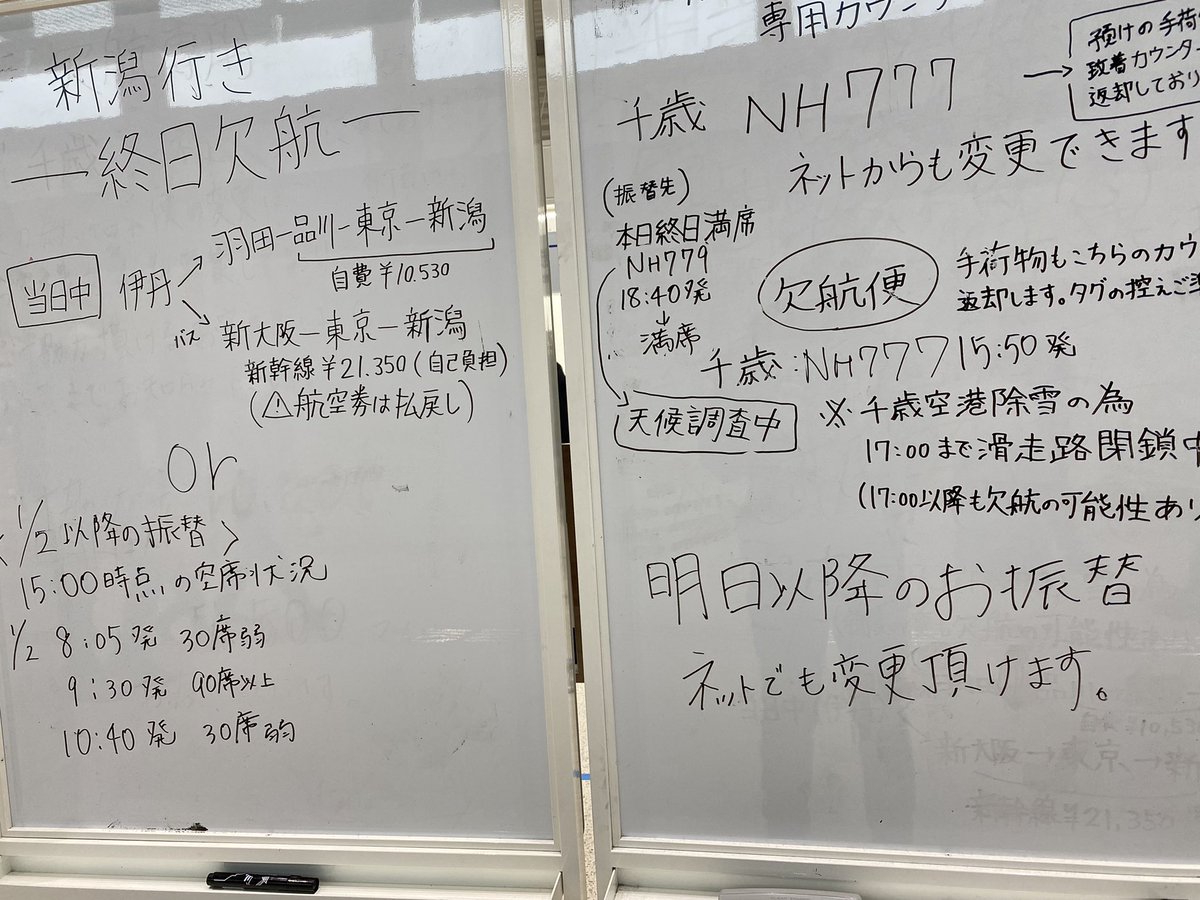 新潟行き
ー終日欠航ー
当日中 伊丹
羽田ー品川ー東京ー新潟
自費¥10.530
バス 新大阪ー東京ー新潟
新幹線¥21.350(自己負担)
(⚠航空券は払戻し)
or
<1/2以降の振替>
15:00時点の空席状況
1/2 8:05発 30席弱
9:30発 90席以上
10:40発 30席弱
専用カウン
千歳 NH777
→ 預けの手荷
到着カウンター
返却しており
ネットからも変更できます
(振替先)
本日終日満席
NH779
18:40発
↓
満席
天候調査中
欠航便
手荷物もこちらのカウ
返却します。タグの控えご
千歳:NH777 15:50発
※千歳空港除雪の為
17:00まで滑走路閉鎖中
(17:00以降も欠航の可能性あり
明日以降のお振替
ネットでも変更頂けます。
自費¥10,530
新大阪→東京→新
新幹線¥21,35